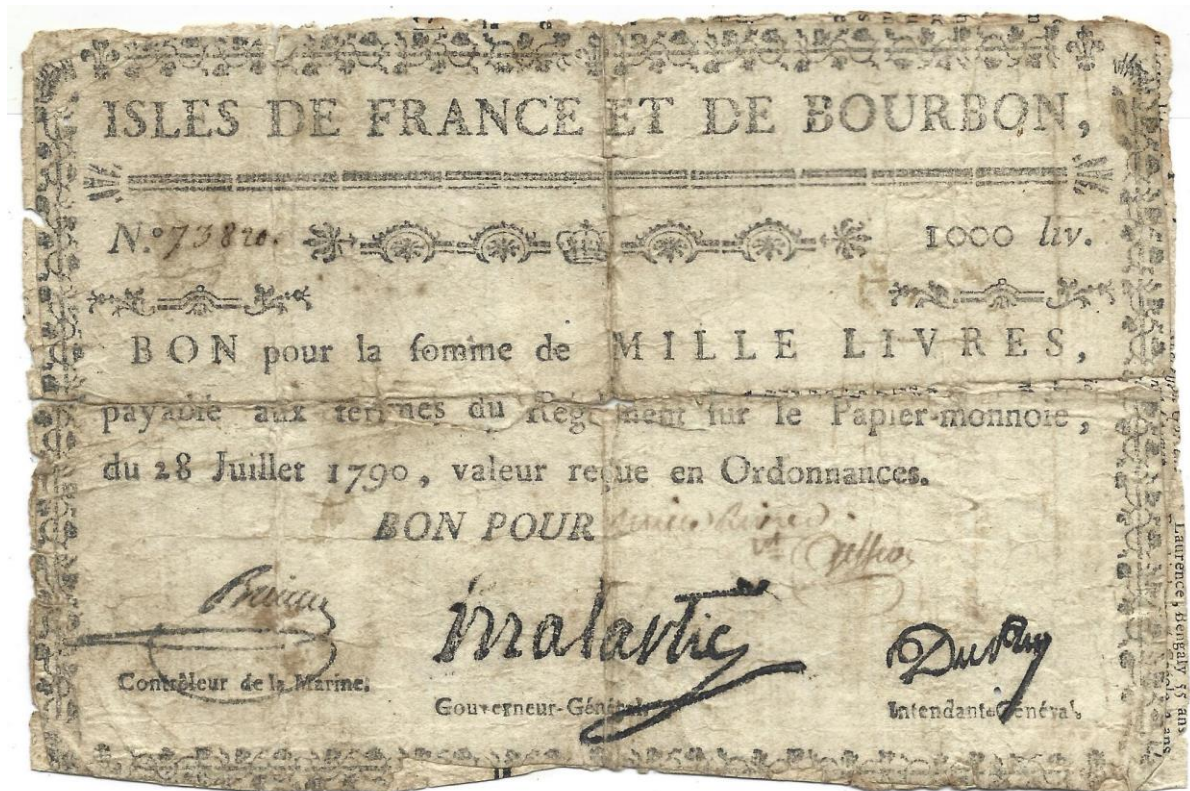 ISLES DE FRANCE ET DE BOURBON,
N.º 73820. 1000 liv.
BON pour la somme de MILLE LIVRES,
payable aux termes du Reglement sur le Papier-monnoie,
du 28 Juillet 1790, valeur reçue en Ordonnances.
BON POUR
Malartic
Dupuy
Contrôleur de la Marine.
Gouverneur-Général.
Intendant-Général.
Laurence, Bengaly 35 ans